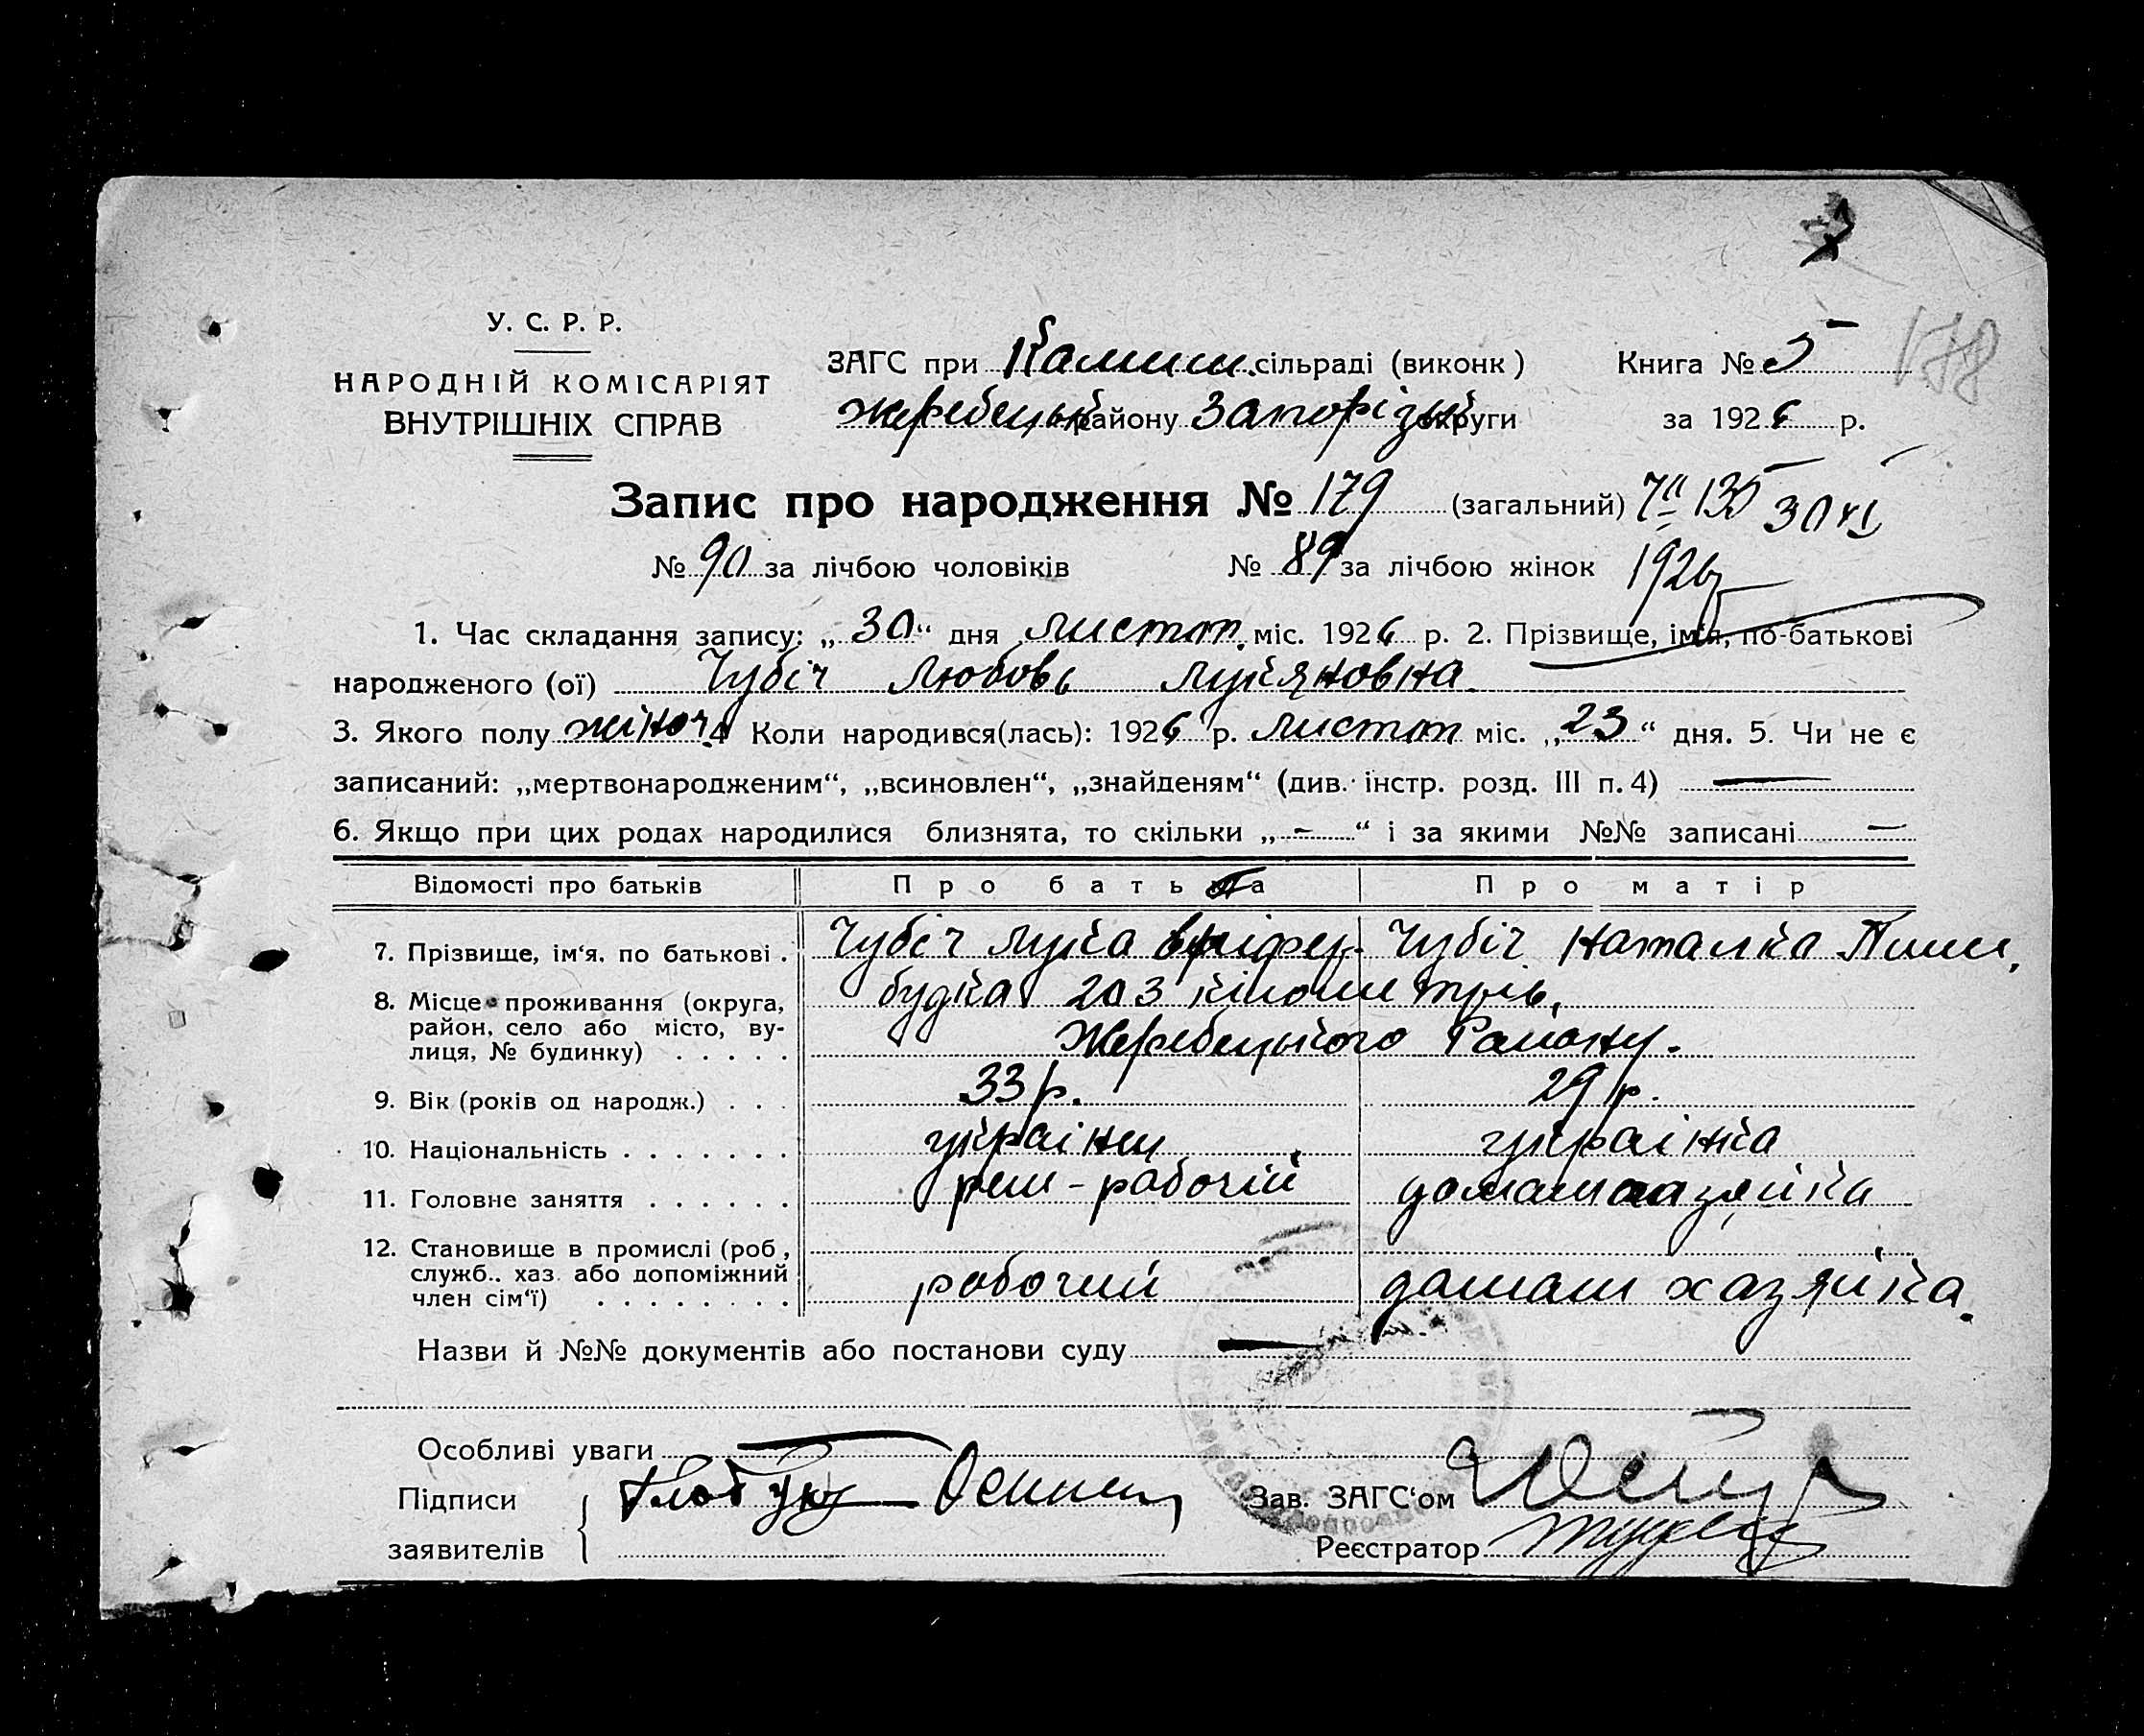 У. С. Р. Р.
НАРОДНІЙ КОМІСАРІЯТ
ВНУТРІШНІХ СПРАВ
ЗАГС при Камиш. сільраді (виконк)
Жеребецьк району Запорізьк округи
Книга № 5
за 1926 р.
178
Запис про народження № 179 (загальний) 135 30 XI
№ 90 за лічбою чоловіків № 89 за лічбою жінок 1926
1. Час складання запису: „30“ дня листоп. міс. 1926 р. 2. Прізвище, ім'я, по-батькові
народженого (ої) Чубіч Любовь Лук'яновна
3. Якого полу жіноч. 4 Коли народився(лась): 1926 р. листоп міс. „23“ дня. 5. Чи не є
записаний: „мертвонародженим“, „всиновлен“, „знайденям“ (див. інстр. розд. III п. 4) —
6. Якщо при цих родах народилися близнята, то скільки „-“ і за якими №№ записані —
Відомості про батьків Про батька Про матір
7. Прізвище, ім'я, по батькові . Чубіч Лука Чубіч Наталка Тим.
8. Місце проживання (округа, будка 203 кілометрів,
район, село або місто, ву-
лиця, № будинку) . . . . . Жеребецького Району.
9. Вік (років од народж.) . . . 33 р. 29 р.
10. Національність . . . . . . . українец українка
11. Головне заняття . . . . . . рем-рабочій домашхазяйка
12. Становище в промислі (роб,
служб.. хаз. або допоміжний
член сім'ї) . . . . . . . . рабочий домаш хазяйка.
Назви й №№ документів або постанови суду —
Особливі уваги
Підписи
заявителів
Зав. ЗАГС'ом
Реєстратор